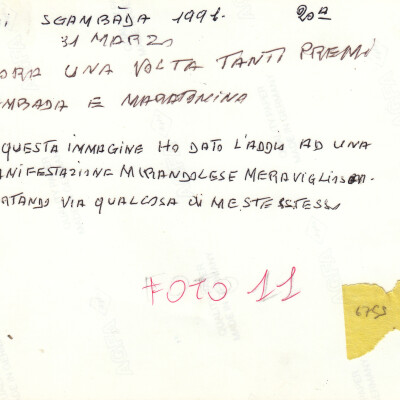 SGAMBADA 1991. 20a
31 MARZO
ORA UNA VOLTA TANTI PREMI
MBADA E MARATONINA
QUESTA IMMAGINE HO DATO L'ADDIO AD UNA
ANIFESTAZIONE MIRANDOLESE MERAVIGLIOSA.
RTANDO VIA QUALCOSA DI ME STESSTESSO
FOTO 11
6753